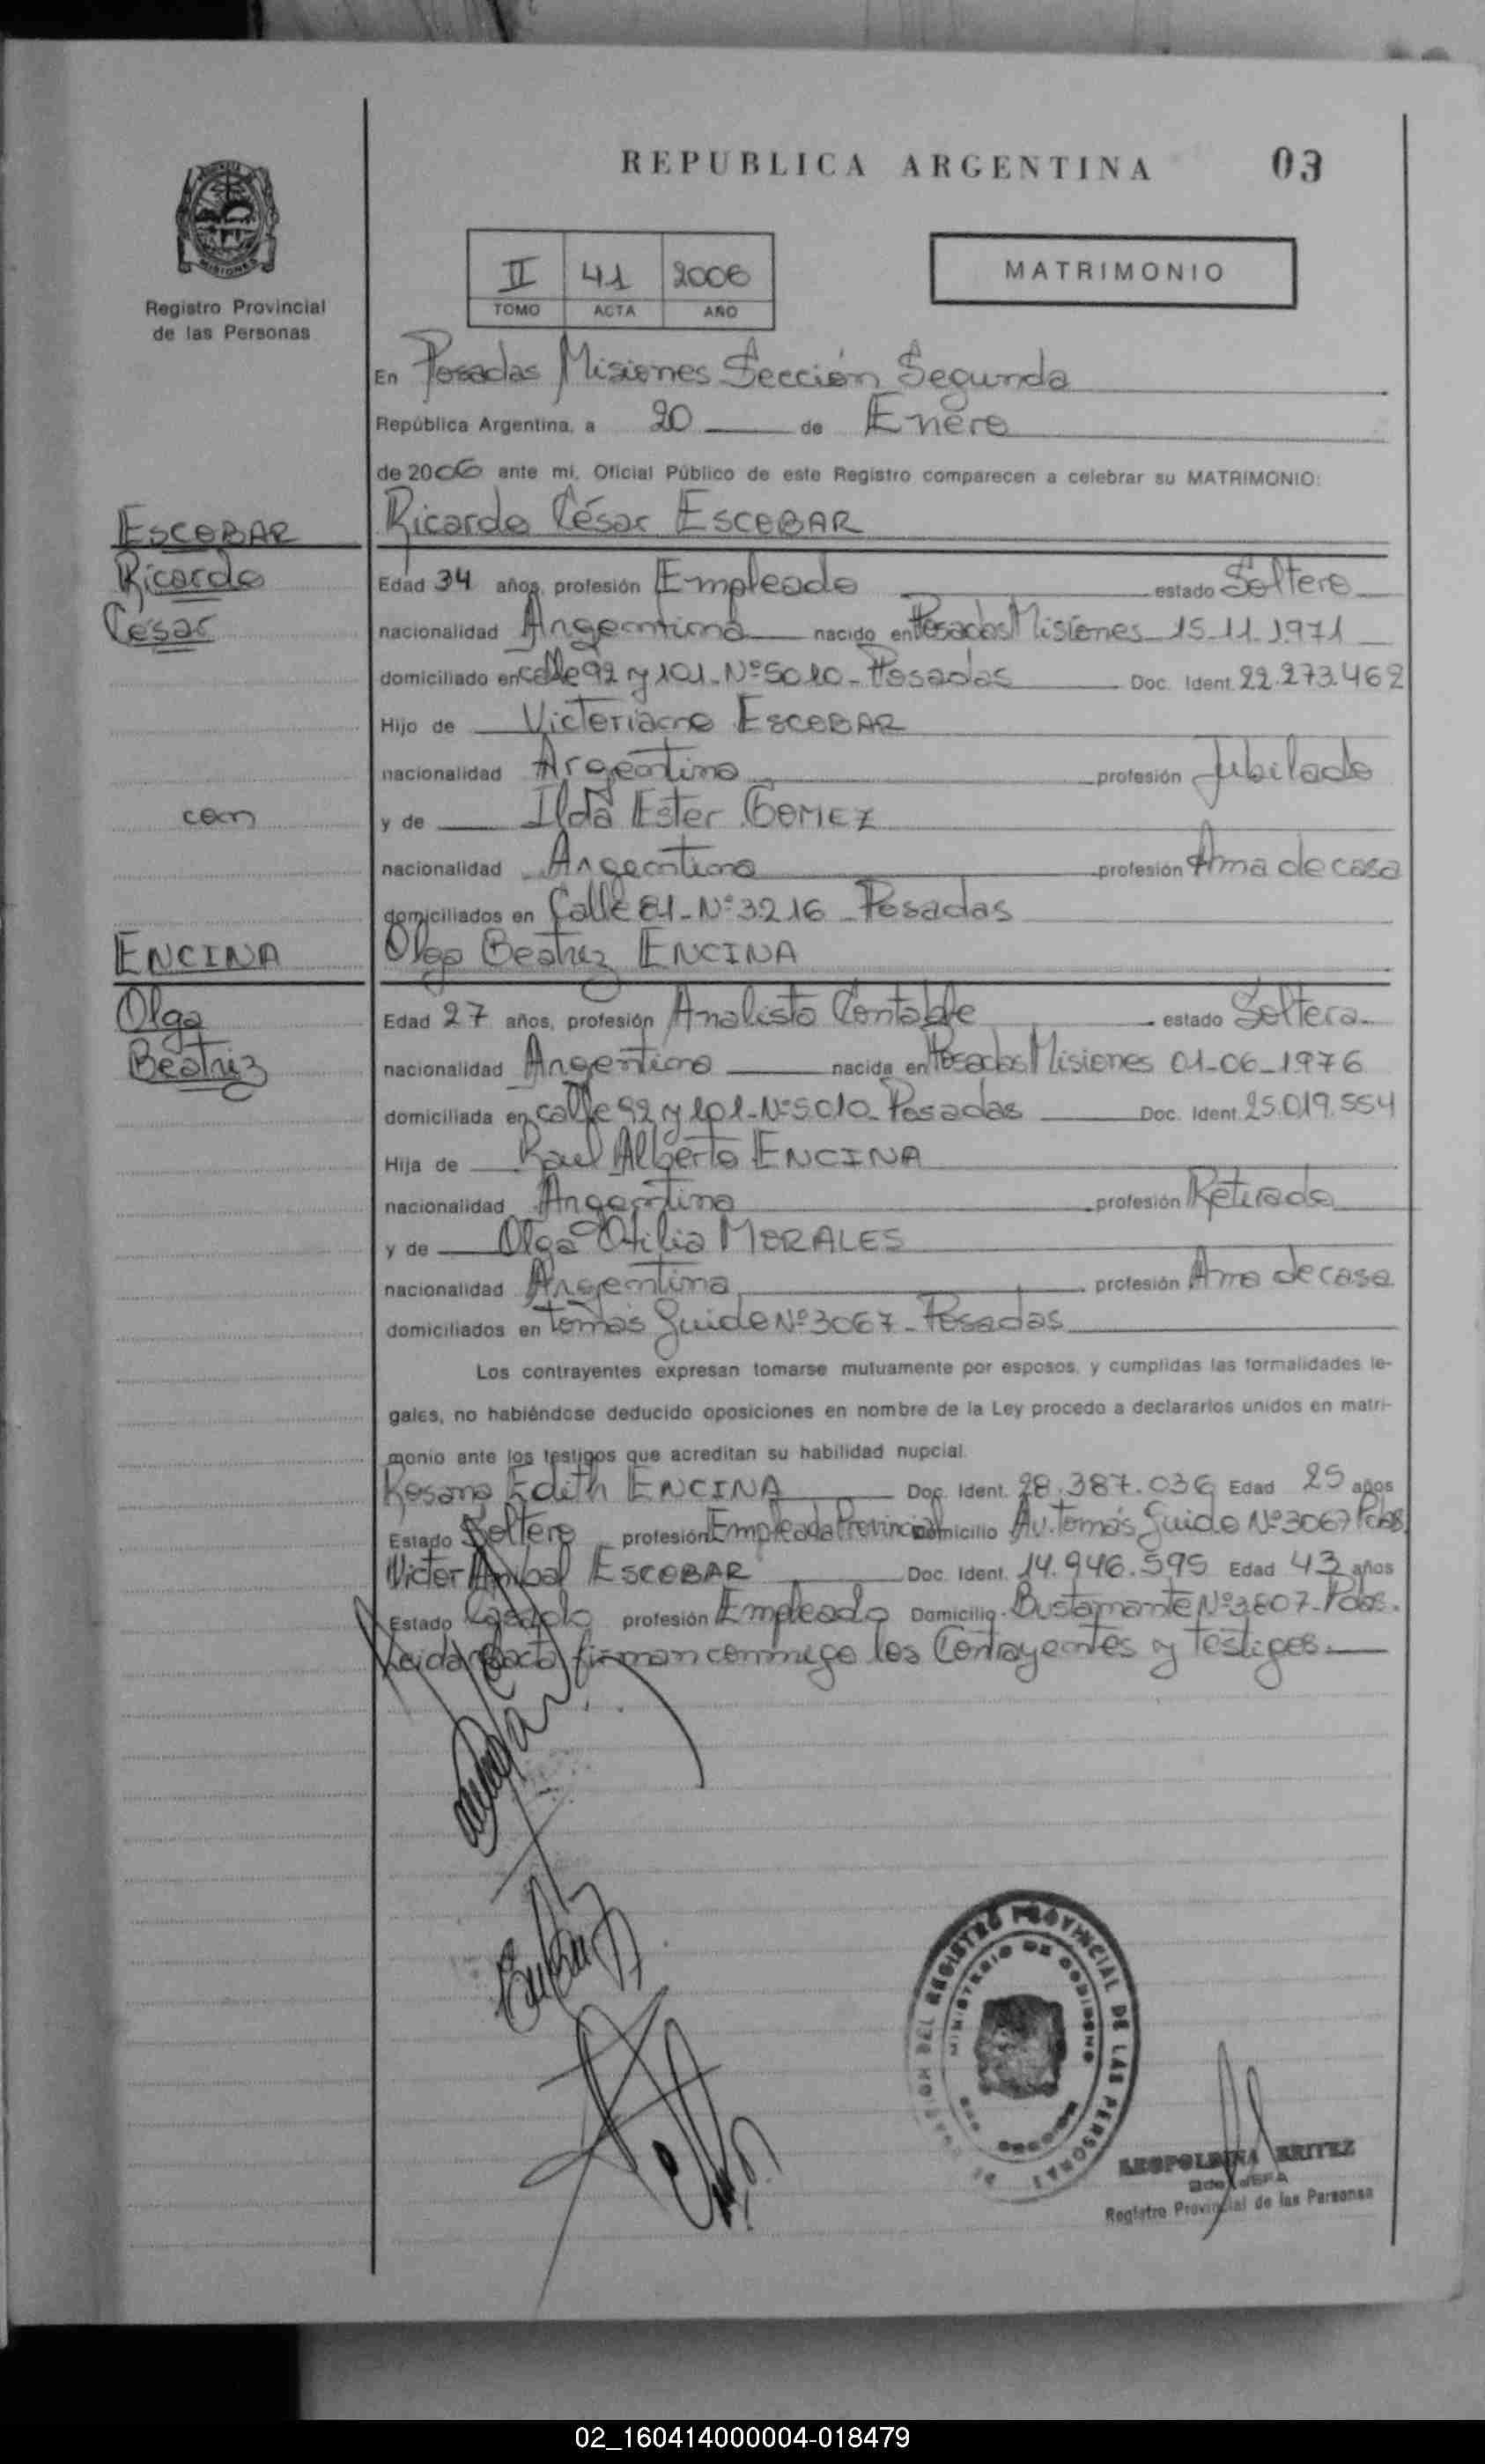 REPUBLICA ARGENTINA 03
MISIONES
Registro Provincial
de las Personas
II 41 2006
TOMO ACTA AÑO
MATRIMONIO
En Posadas Misiones Sección Segunda
República Argentina, a 20 de Enero
de 2006 ante mi, Oficial Público de este Registro comparecen a celebrar su MATRIMONIO:
ESCOBAR
Ricardo
César
Ricardo César ESCOBAR
Edad 34 años, profesión Empleado estado Soltero
nacionalidad Argentina nacido en Posadas Misiones 15-11-1971
domiciliado en calle 92 y 101-Nº5010-Posadas Doc. Ident. 22.273.462
Hijo de Victoriano ESCOBAR
nacionalidad Argentina profesión Jubilado
con
y de Ilda Ester GOMEZ
nacionalidad Argentina profesión Ama de casa
domiciliados en Calle 81-Nº3216 Posadas
ENCINA
Olga
Beatriz
Olga Beatriz ENCINA
Edad 27 años, profesión Analista Contable estado Soltera
nacionalidad Argentina nacida en Posadas Misiones 01-06-1976
domiciliada en calle 92 y 101-Nº5010-Posadas Doc. Ident. 25.019.554
Hija de Raul Alberto ENCINA
nacionalidad Argentina profesión Retirado
y de Olga Otilia MORALES
nacionalidad Argentina profesión Ama de casa
domiciliados en Tomás Guido Nº3067-Posadas
Los contrayentes expresan tomarse mutuamente por esposos, y cumplidas las formalidades le-
gales, no habiéndose deducido oposiciones en nombre de la Ley procedo a declararlos unidos en matri-
monio ante los testigos que acreditan su habilidad nupcial.
Rosana Edith ENCINA Doc. Ident. 28.387.036 Edad 25 años
Estado Soltero profesión Empleada Provincial Domicilio Av. Tomás Guido Nº3067 Pdas.
Victor Anibal ESCOBAR Doc. Ident. 14.946.595 Edad 43 años
Estado Casado profesión Empleado Domicilio Bustamante Nº3807-Pdas.
Leida acta firman conmigo los Contrayentes y testigos.
REGISTRO PROVINCIAL DE LAS PERSONAS
MINISTERIO DE GOBIERNO
MISIONES
LEOPOLDINA BRITEZ
JEFA
Registro Provincial de las Personas
02_160414000004-018479